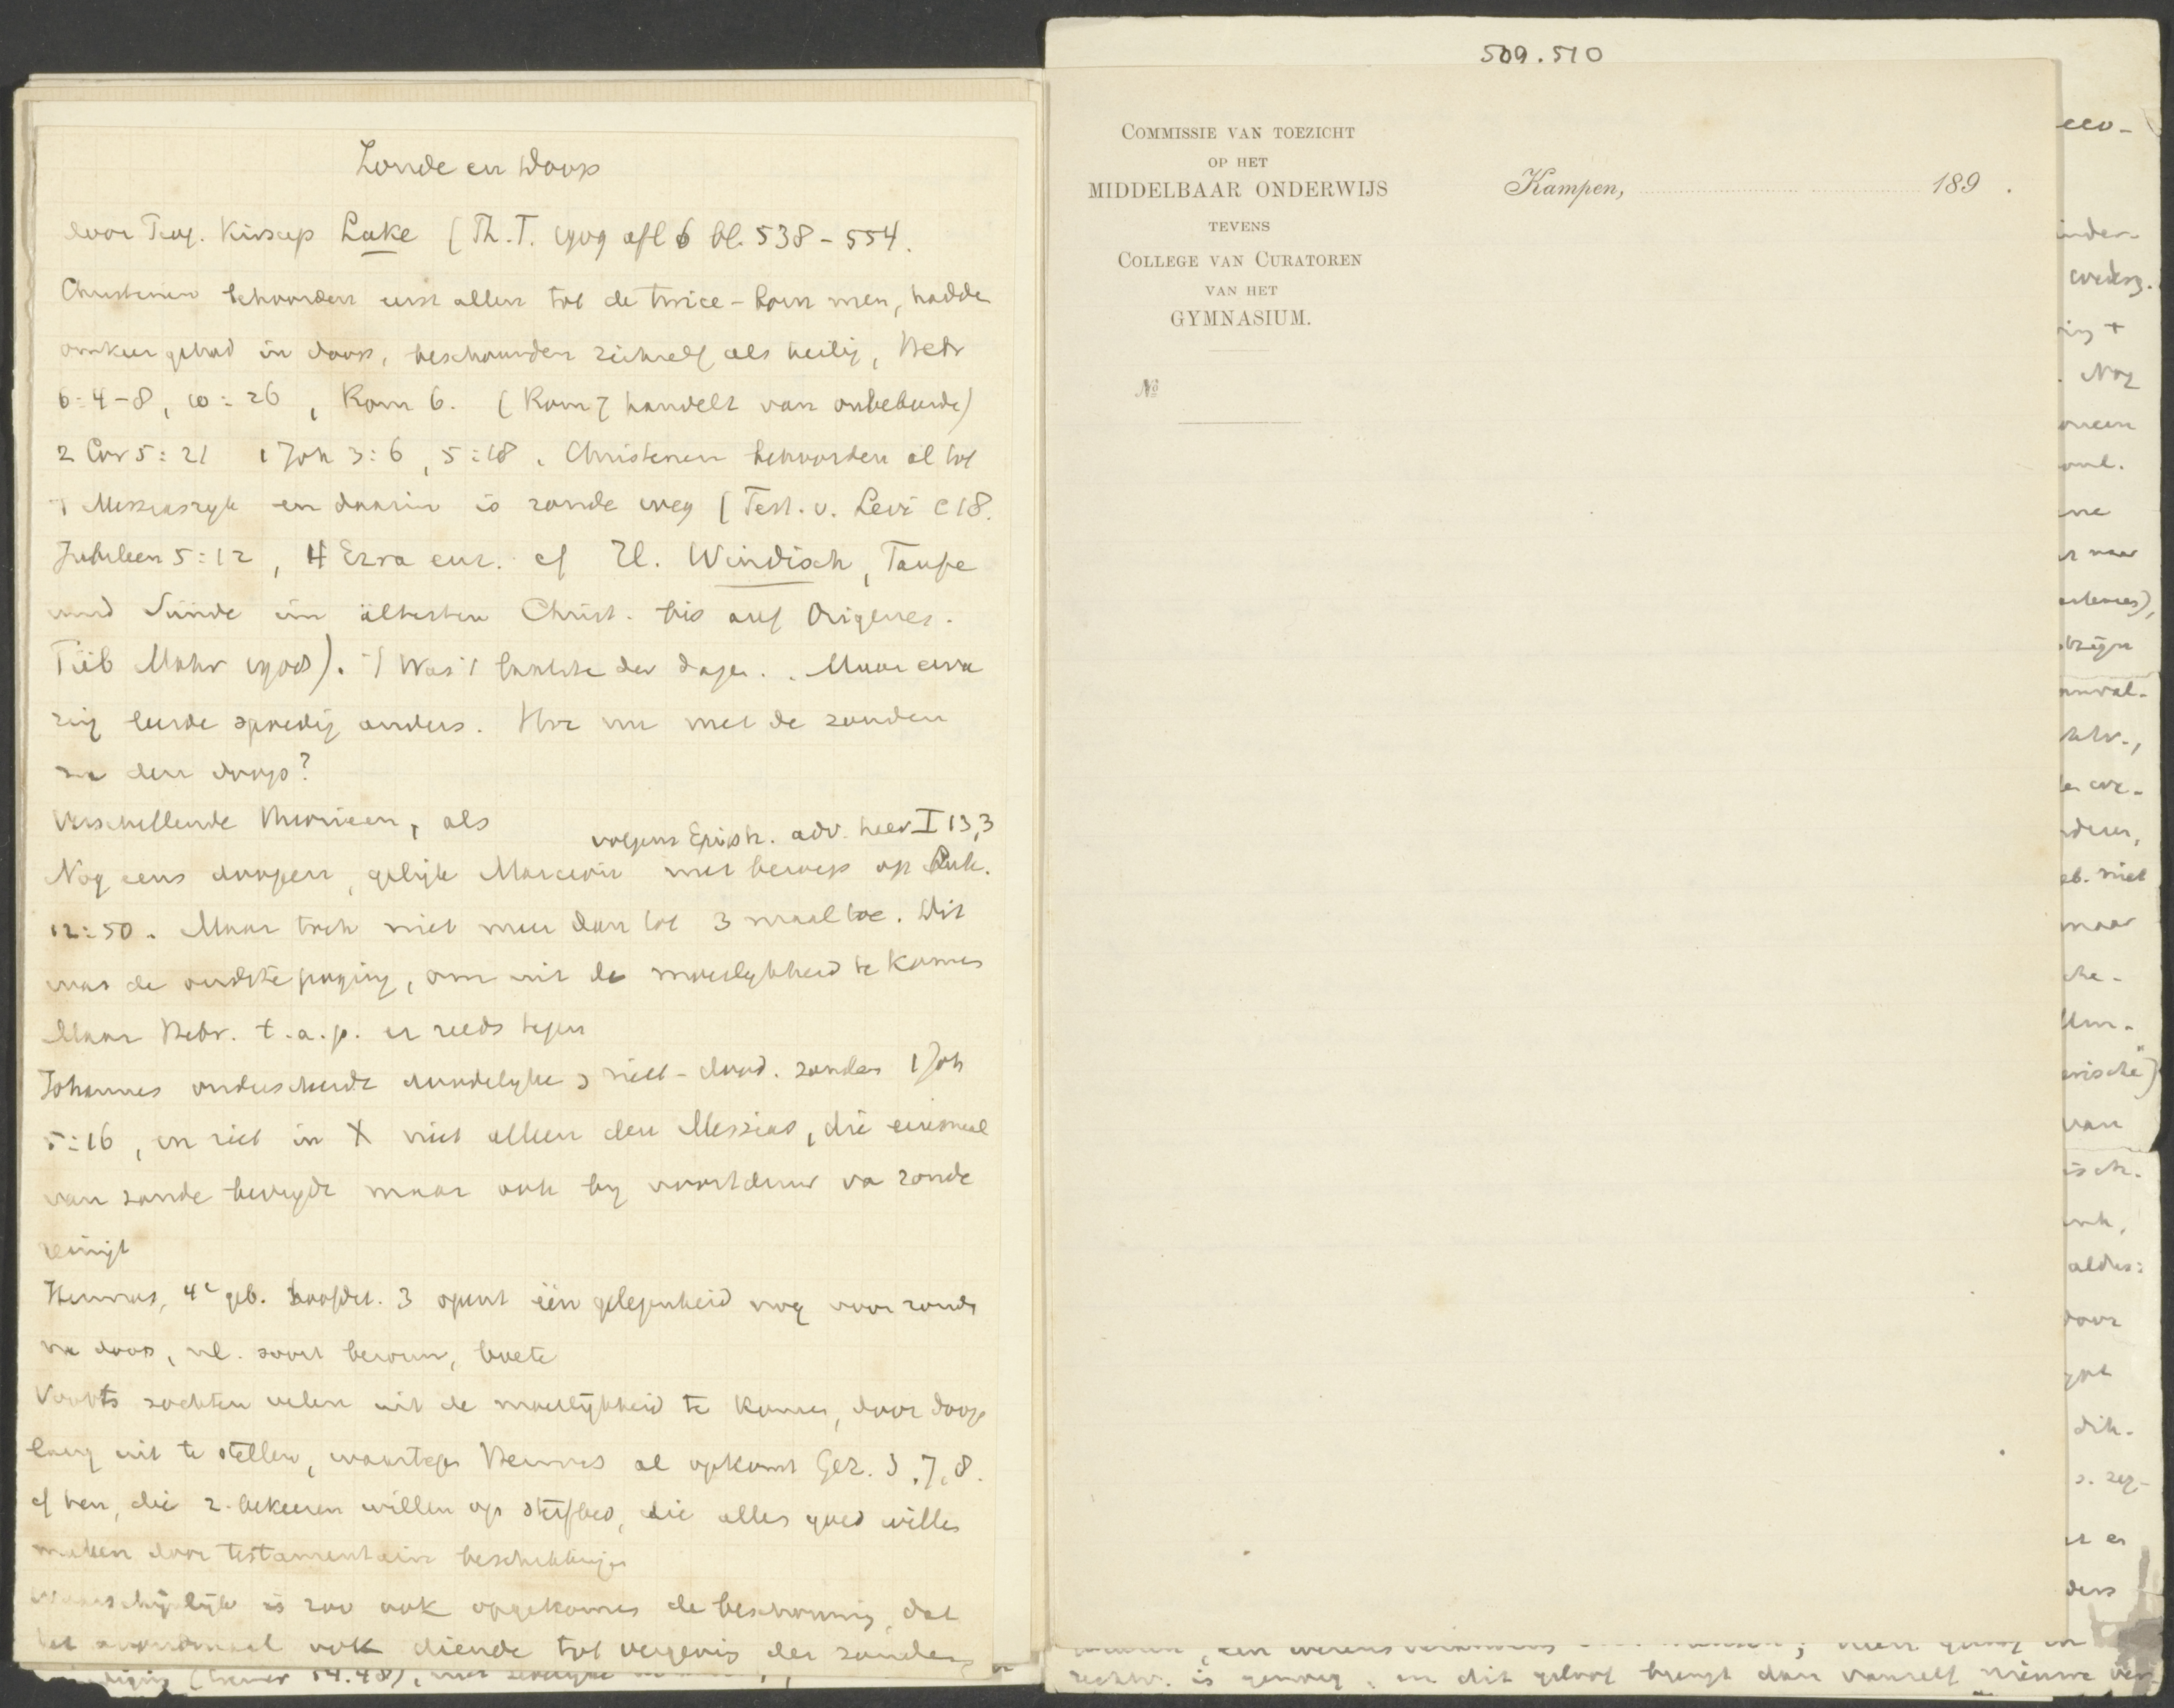 Zonde en Doop
door Prof. Kirsopp Lake (Th. T. 1909 afl 6 bl. 538-554.
Christenen behoorden eerst allen tot de twice-born men, hadde
omkeer gehad in doop, beschouwden zichzelf als heilig, Hebr
6:4-8, 10:26, Rom 6. (Rom 7 handelt van onbekeerde)
2 Cor 5:21 1 Joh 3:6, 5:18. Christenen behoorden al tot
't Messiasryk en daarin is zonde weg (Test. v. Levi c 18.
Jubileen 5:12, 4 Ezra enz. cf H. Windisch, Taufe
und Sünde im ältesten Christ. bis auf Origenes.
Tüb Mohr 1908). 't Was 't laatste der dagen. Maar erva
ring leerde spoedig anders. Hoe nu met de zonden
na den doop?
Verschillende theorieen, als
volgens Epiph. adv. haer I 13,3
Nog eens doopen, gelijk Marcion met beroep op Luk.
12:50. Maar toch niet meer dan tot 3 maal toe. Dit
was de oudste poging, om uit de moeilykheid te komen
Maar Hebr. t.a.p. er reeds tegen
Johannes onderscheidde doodelyke & niet-dood. zonden 1 Joh
5:16, en ziet in X niet alleen den Messias, die eenmaal
van zonde bevrydt maar ook by voortduur va zonde
reinigt
Hermas, 4e geb. hoofdst. 3 opent één gelegenheid nog voor zonde
na doop, nl. soort berouw, boete
Voorts zochten velen uit de moeilijkheid te komen, door doop
lang uit te stellen, waartegen Hermas al opkomt Gez. 3,7,8.
cf hen, die z. bekeeren willen op sterfbed, die alles goed willen
maken door testamentaire beschikkingen
Waarschijnlijk is zoo ook opgekomen de beschouwing, dat
het avondmaal ook diende tot vergevis der zonden
509.510
COMMISSIE VAN TOEZICHT
OP HET
MIDDELBAAR ONDERWIJS
TEVENS
COLLEGE VAN CURATOREN
VAN HET
GYMNASIUM.
Kampen, 189 .
No
rechtv. is genoeg, en dit geloof brengt dan vanzelf nieuwe ver-